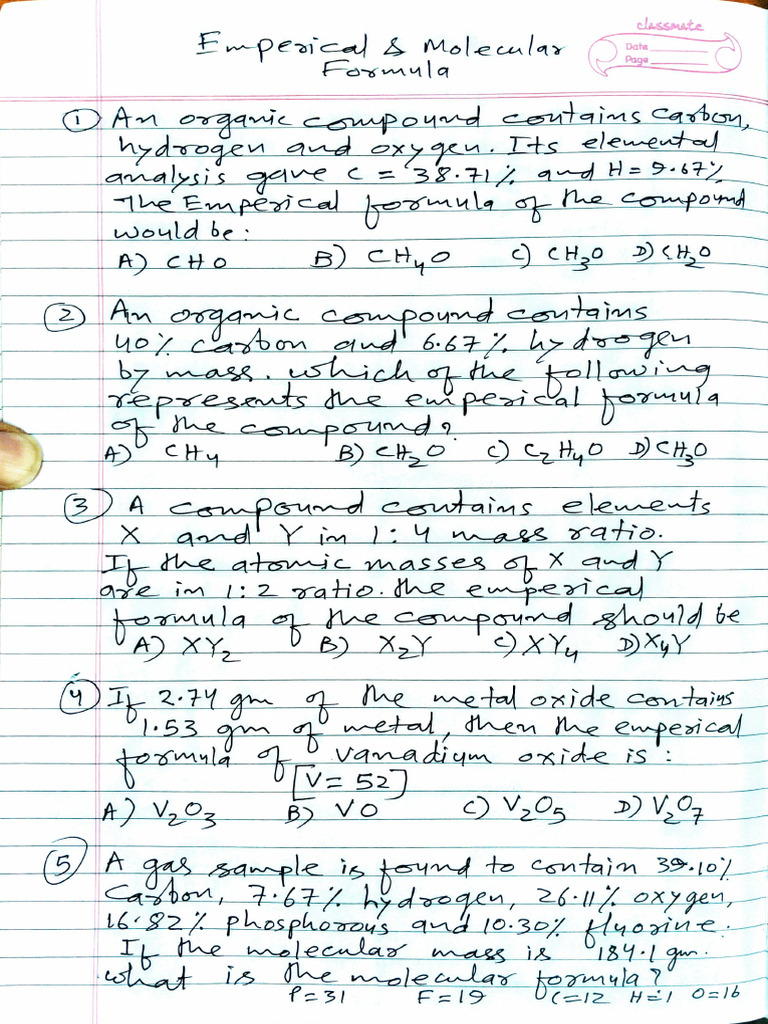 classmate
Date
Page
Emperical & Molecular
Formula
① An organic compound contains carbon,
hydrogen and oxygen. Its elemental
analysis gave C = 38.71% and H = 9.67%
The Emperical formula of the compound
would be:
A) CHO B) CH4O C) CH3O D) CH2O
② An organic compound contains
40% carbon and 6.67% hydrogen
by mass. which of the following
represents the emperical formula
of the compound?
A) CH4 B) CH2O C) C2H4O D) CH3O
③ A compound contains elements
X and Y in 1:4 mass ratio.
If the atomic masses of X and Y
are in 1:2 ratio. the emperical
formula of the compound should be
A) XY2 B) X2Y C) XY4 D) X4Y
④ If 2.74 gm of the metal oxide contains
1.53 gm of metal, then the emperical
formula of vanadium oxide is :
[V = 52]
A) V2O3 B) VO C) V2O5 D) V2O7
⑤ A gas sample is found to contain 39.10%
Carbon, 7.67% hydrogen, 26.11% oxygen,
16.82% phosphorous and 10.30% flyorine.
If the molecular mass is 184.1 gm.
what is the molecular formula?
P=31 F=19 C=12 H=1 O=16